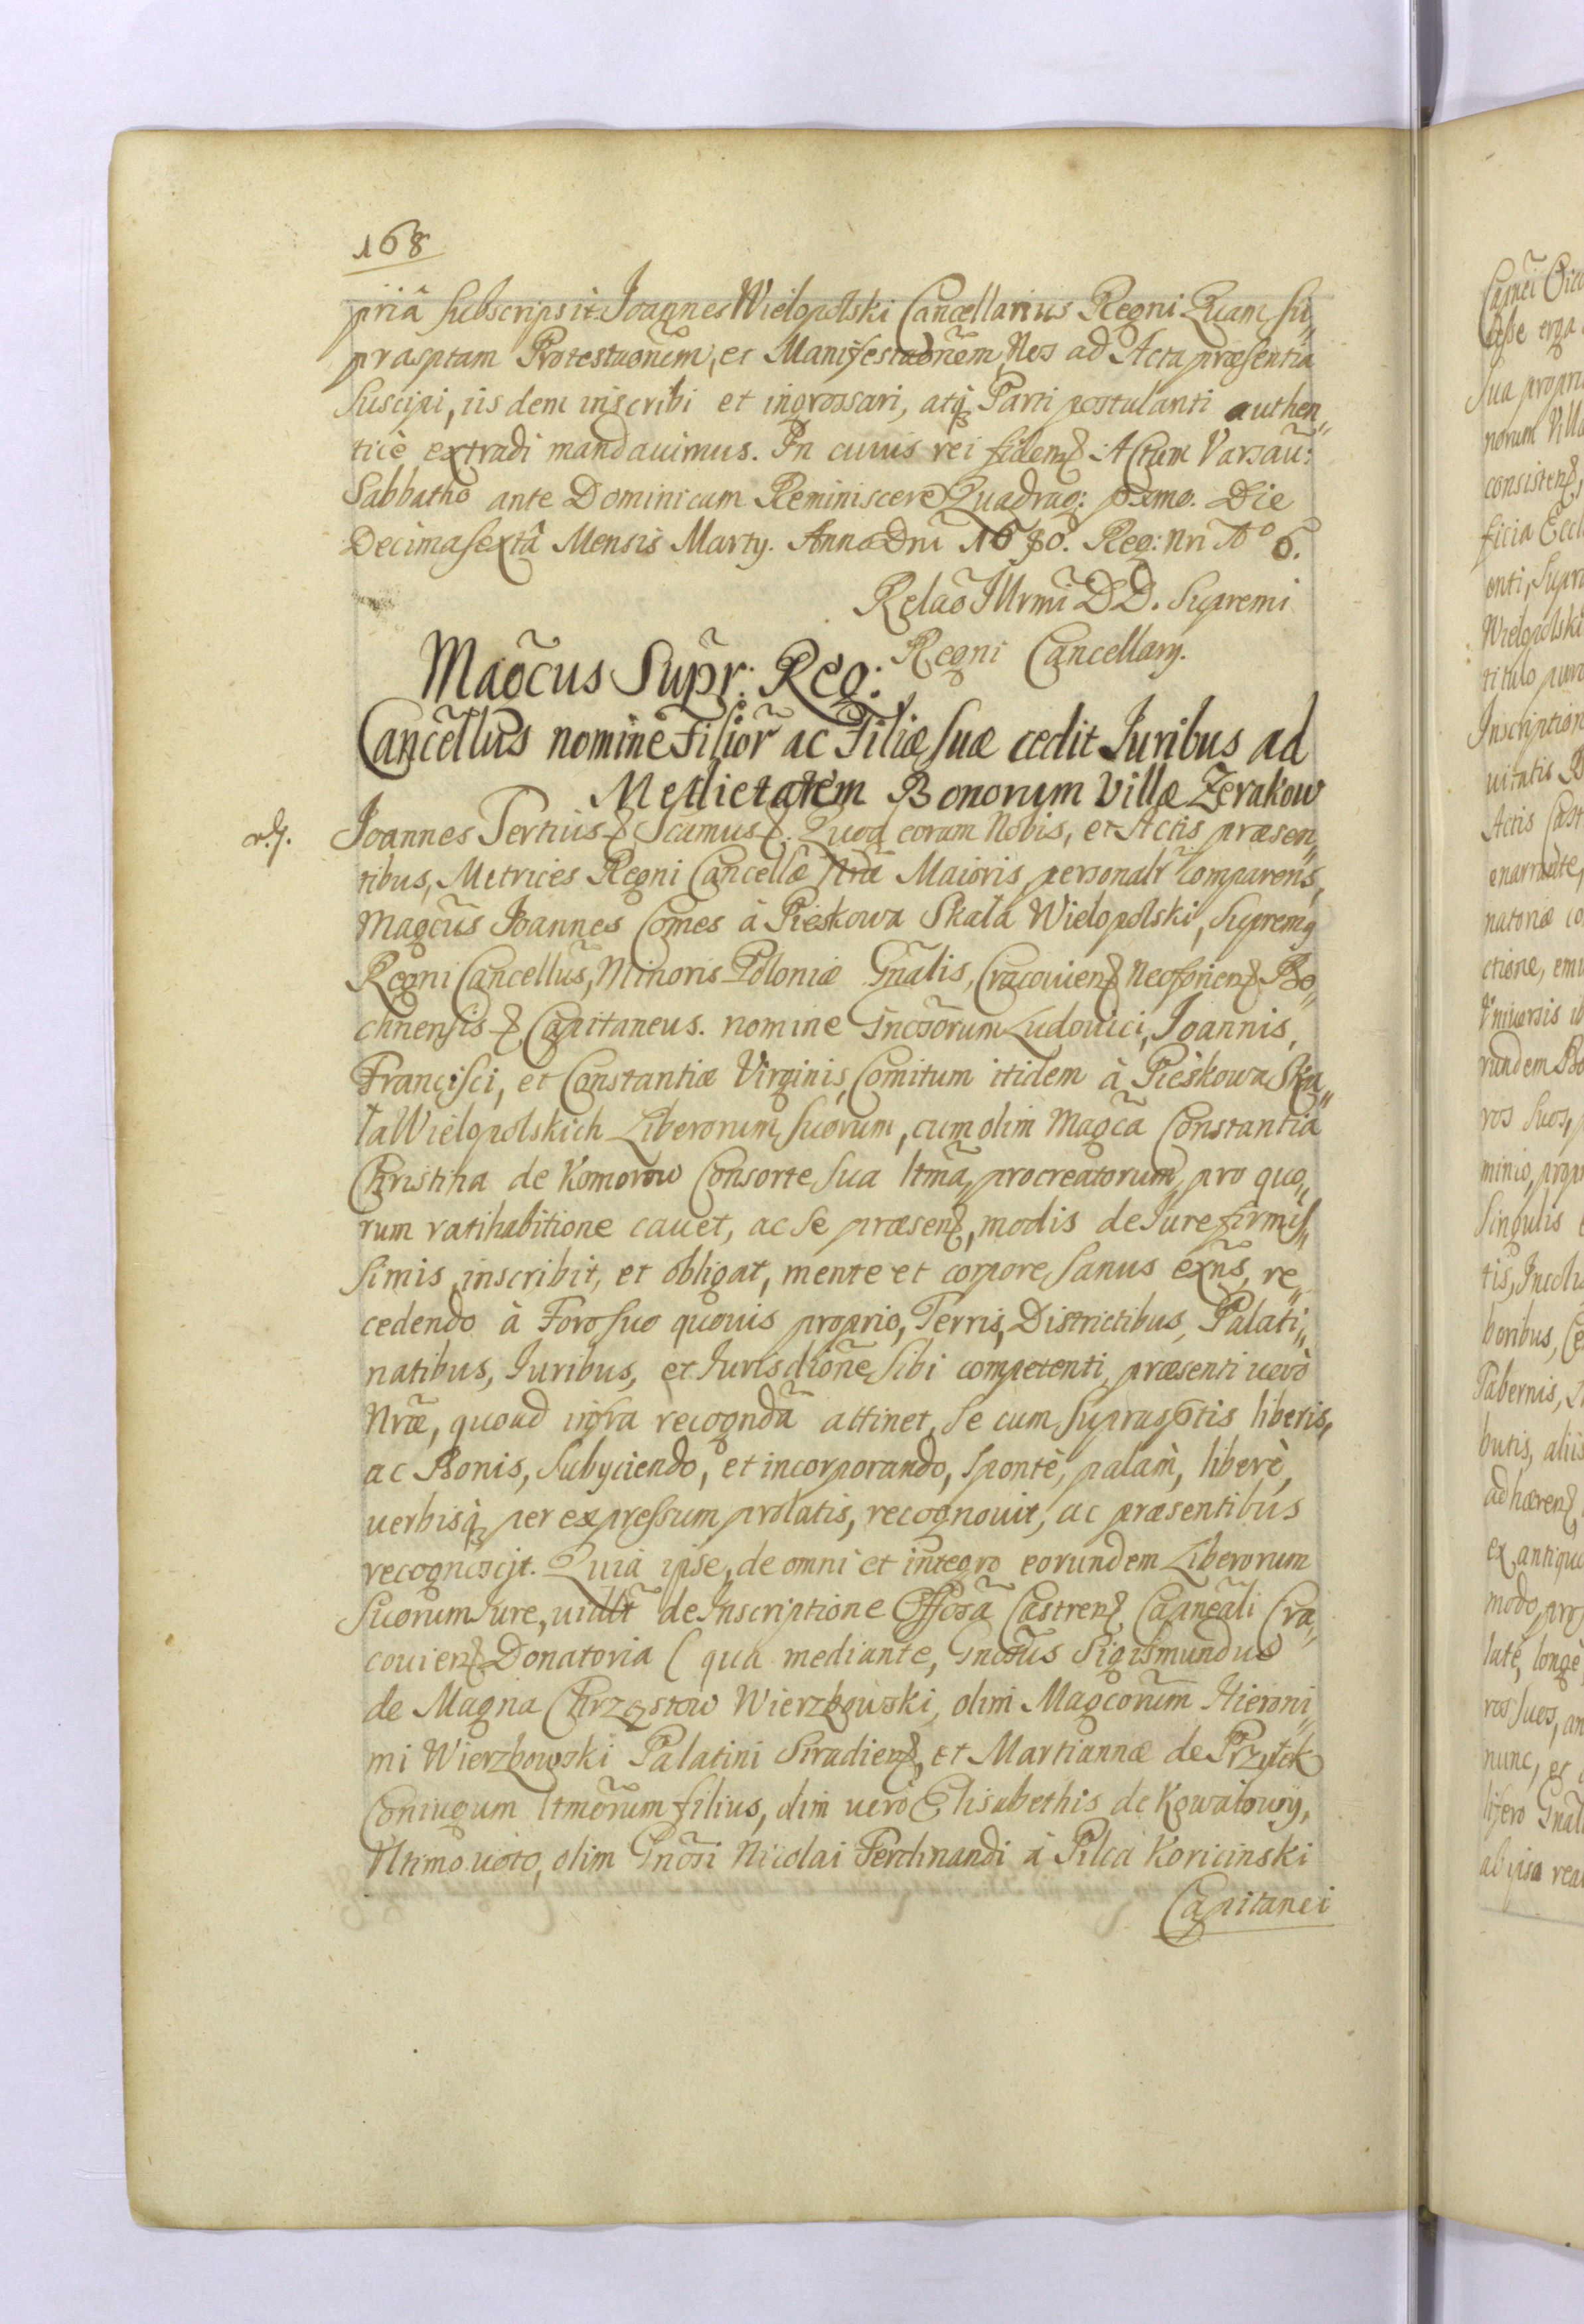 168
priâ Subscripsit Joannes Wielopolski Cancellarius Regni Quam Su„
prasptam Protestaõnem, et Manifestaõnem, Nos ad Acta præsentia
Suscipi, iisdem inscribi et ingrossari, atq Parti postulanti authen„
ticè extradi mandavimus. In cuius rei fidem Actum Varsav:
Sabbatho ante Dominicam Reminiscere Quadrag: pxmo. Die
Decimasextâ Mensis Martÿ. Anno Dni 1680. Reg: Nri Aº 6.
Relaõ Illrmi DD. Supremi
Regni Cancellarÿ.
Magcus Supr: Reg:
Cancellus nomine Filior ac Filiæ suæ cedit Iuribus ad
Medietatem Bonorum Villæ Zerakow
Joannes Tertius Scamus. Quod coram Nobis, et Actis præsen„
tibus, Metrices Regni Cancellæ Nræ Maioris personalr comparens,
Magcus Joannes Comes à Pieskowa Skała Wielopolski, Supremg
Regni Cancellus, Minoris Poloniæ Gnalis, Cracovien Neoforien Bo„
chnensis Capitaneus. nomine Gncsorum Ludovici, Joannis,
Francisci, et Constantiæ Virginis, Comitum itidem à Pieskowa Ska„
ła Wielopolskich Liberorum Suorum, cum olim Magca Constantia
Christina de Komorow Consorte Sua ltma, procreatorum, pro quo„
rum ratihabitione cavet, ac Se præsen, modis de Iure firmis„
simis inscribit, et obligat, mente et corpore Sanus exns, re„
cedendo à Foro suo quovis proprio, Terris, Districtibus, Palati„
natibus, Iuribus, et Iurisdione Sibi competenti, præsenti verò
Nræ, quoad infra recognda attinet, Se cum Suprasptis liberis,
ac Bonis, Subÿciendo, et incorporando, Spontè, palàm, liberè,
verbisq per expressum prolatis, recognovit, ac præsentibus
recognoscit. Quia ipse, de omni et integro eorundem Liberorum
Suorum Iure, de Inscriptione Offosa Castren Capneali Cra„
covien Donatoria ( qua mediante, Gnosus Sigismundus
de Magna Chrząstow Wierzbowski, olim Magcorum Hieroni„
mi Wierzbowski Palatini Siradien, et Martiannæ de Przyłek
Coniugum ltmorum filius, olim verò Elisabethis de Kowałowÿ,
Ultimo voto, olim Gnosi Nicolai Ferdinandi à Pilca Koricinski
Capitanei